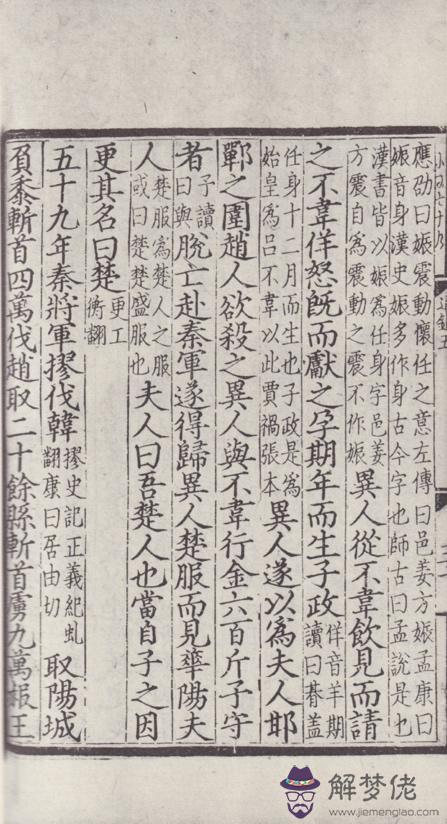 應劭曰娠震動懷任之意左傳曰邑姜方娠孟康曰
娠音身漢史娠多作身古今字也師古曰孟說是也
漢書皆以娠為任身字邑姜方震自為震動之震不作娠異人從不韋飲見而請
之不韋佯怒既而獻之孕期年而生子政佯音羊期讀曰朞蓋
任身十二月而生也子政是為始皇為呂不韋以此賈禍張本異人遂以為夫人邯
鄲之圍趙人欲殺之異人與不韋行金六百斤予守
者予讀曰與脫亡赴秦軍遂得歸異人楚服而見華陽夫
人楚服為楚人之服或曰楚楚盛服也夫人曰吾楚人也當自子之因
更其名曰楚更工衡翻
五十九年秦將軍摎伐韓摎史記正義紀虬翻康曰居由切取陽城
負黍斬首四萬伐趙取二十餘縣斬首虜九萬赧王
解梦佬
www.jiemenglao.com